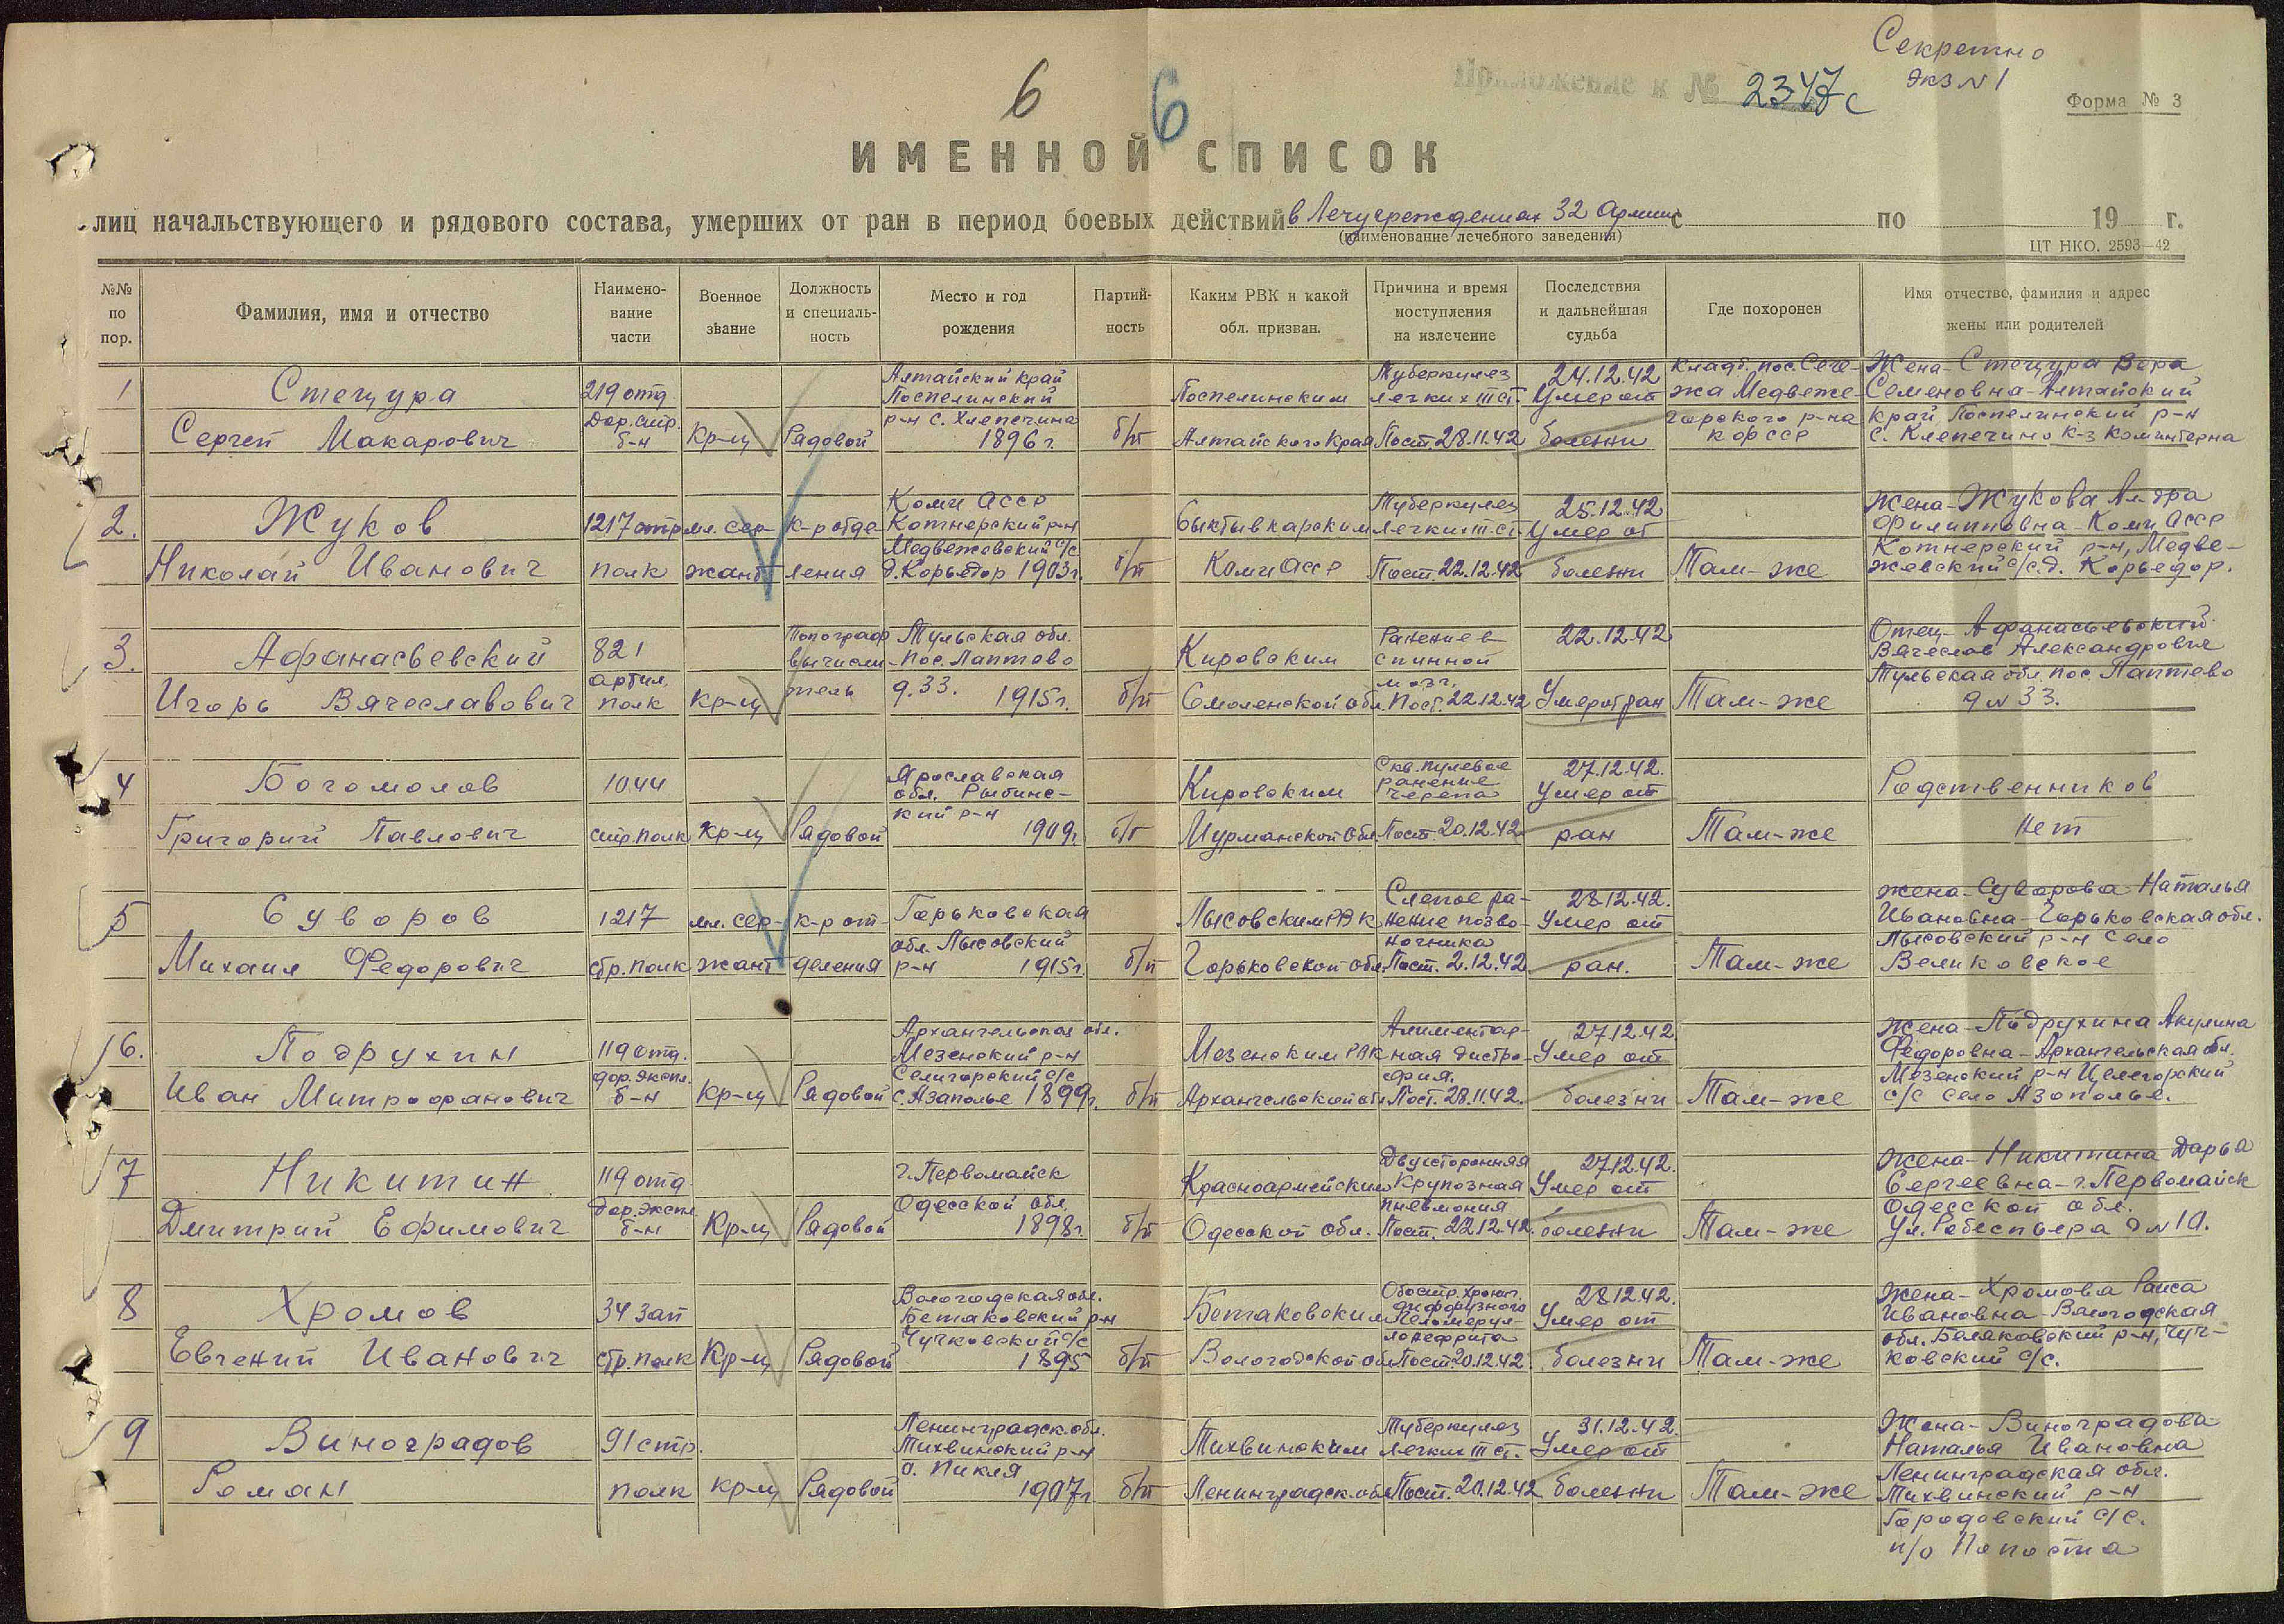 Секретно
экз N 1
6 6
Приложение к № 2347с
Форма № 3
ИМЕННОЙ СПИСОК
лиц начальствующего и рядового состава, умерших от ран в период боевых действий в Лечучреждениях 32 Армии с по 19 г.
(наименование лечебного заведения)
ЦТ НКО. 2593—42
№№ по пор.
Фамилия, имя и отчество
Наимено-
вание
части
Военное
звание
Должность
и специаль-
ность
Место и год
рождения
Партий-
ность
Каким РВК и какой
обл. призван.
Причина и время
поступления
на излечение
Последствия
и дальнейшая
судьба
Где похоронен
Имя отчество, фамилия и адрес
жены или родителей
1
Стецура
Сергей Макарович
219 отд.
Дор. стр.
б-н
Кр-ц
Рядовой
Алтайский край
Поспелинский
р-н с. Хлепечина
1896 г.
б/п
Поспелинским
Алтайского Края
Туберкулез
легких III ст.
Пост. 28.11.42
24.12.42
Умер от
болезни
Кладб. пос. Сече-
жа Медвеже-
горского р-на
КФССР
Жена - Стецура Вера
Семеновна - Алтайский
край Поспелинский р-н
с. Клепечино к-з Коминтерна
2.
Жуков
Николай Иванович
1217 стр
полк
мл. сер-
жант
к-р отде-
ления
Коми АССР
Котнерский р-н
Медвежевский с/с
д. Корьедор 1903 г.
б/п
Сыктывкарским
Коми АССР
Туберкулез
легких III ст.
Пост. 22.12.42
25.12.42
Умер от
болезни
Там-же
Жена - Жукова Ал-дра
Филипповна - Коми АССР
Котнерский р-н, Медве-
жевский с/с. д. Корьедор.
3.
Афанасьевский
Игорь Вячеславович
821
артил.
полк
кр-ц
Топограф
вычисли-
тель
Тульская обл.
пос. Лаптево
д. 33. 1915 г.
б/п
Кировским
Смоленской обл.
Ранение в
спинной
мозг.
Пост. 22.12.42
22.12.42
Умер от ран
Там-же
Отец - Афанасьевский
Вячеслав Александрович
Тульская обл. пос. Лаптево
д N 33.
4
Богомолов
Григорий Павлович
1044
стр. полк
кр-ц
Рядовой
Ярославская
обл. Рыбинс-
кий р-н
1909 г.
б/п
Кировским
Мурманской обл.
Скв. пулевое
ранение
черепа
Пост. 20.12.42
27.12.42.
Умер от
ран
Там-же
Родственников
нет
5
Суворов
Михаил Федорович
1217
стр. полк
мл. сер-
жант
к-р от-
деления
Горьковская
обл. Лысовский
р-н 1915 г.
б/п
Лысовским РВК
Горьковской обл.
Слепое ра-
нение позво-
ночника
Пост. 2.12.42
28.12.42.
Умер от
ран.
Там-же
жена - Суворова Наталья
Ивановна - Горьковская обл.
Лысовский р-н село
Великовское
6.
Подрухин
Иван Митрофанович
119 отд.
дор. экспл.
б-н
кр-ц
Рядовой
Архангельская обл.
Мезенский р-н
Селигорский с/с
с. Азаполье 1899 г.
б/п
Мезенским РВК
Архангельской обл
Алиментар-
ная дистро-
фия.
Пост. 28.11.42.
27.12.42
Умер от
болезни
Там-же
Жена - Подрухина Акулина
Федоровна - Архангельская обл.
Мезенский р-н Целегорский
с/с село Азополье.
7
Никитин
Дмитрий Ефимович
119 отд
дор. экспл
б-н
Кр-ц
Рядовой
г. Первомайск
Одесской обл.
1898 г.
б/п
Красноармейским
Одесской обл.
Двусторонняя
Крупозная
пневмония
Пост. 22.12.42.
27.12.42.
Умер от
болезни
Там-же
Жена - Никитина Дарья
Сергеевна - г. Первомайск
Одесской обл.
ул. Робеспьера д N 10.
8
Хромов
Евгений Иванович
34 зап
стр. полк
Кр-ц
Рядовой
Вологодская обл.
Бетаковский р-н
Чучковский с/с
1895
б/п
Бетаковским
Вологодской обл
Обостр. хронич.
диффузного
гломерул-
лонефрита
Пост. 20.12.42.
28.12.42.
Умер от
болезни
Там-же
Жена - Хромова Раиса
Ивановна - Вологодская
обл. Беляковский р-н, Чуч-
ковский с/с.
9
Виноградов
Роман
91 стр.
полк
кр-ц
Рядовой
Ленинградск. обл.
Тихвинский р-н
д. Пикля
1907 г
б/п
Тихвинским
Ленинградск. обл
Туберкулез
легких III ст.
Пост. 20.12.42
31.12.42.
Умер от
болезни
Там-же
Жена - Виноградова
Наталья Ивановна
Ленинградская обл.
Тихвинский р-н
Городовский с/с.
п/о